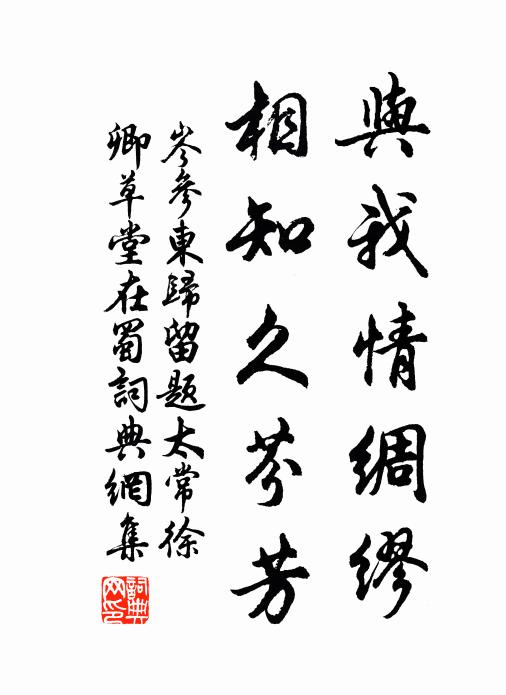 與我情綢繆
相知久芬芳
岑參東歸留題太常徐
卿草堂在蜀詞典網集
詞典
网印